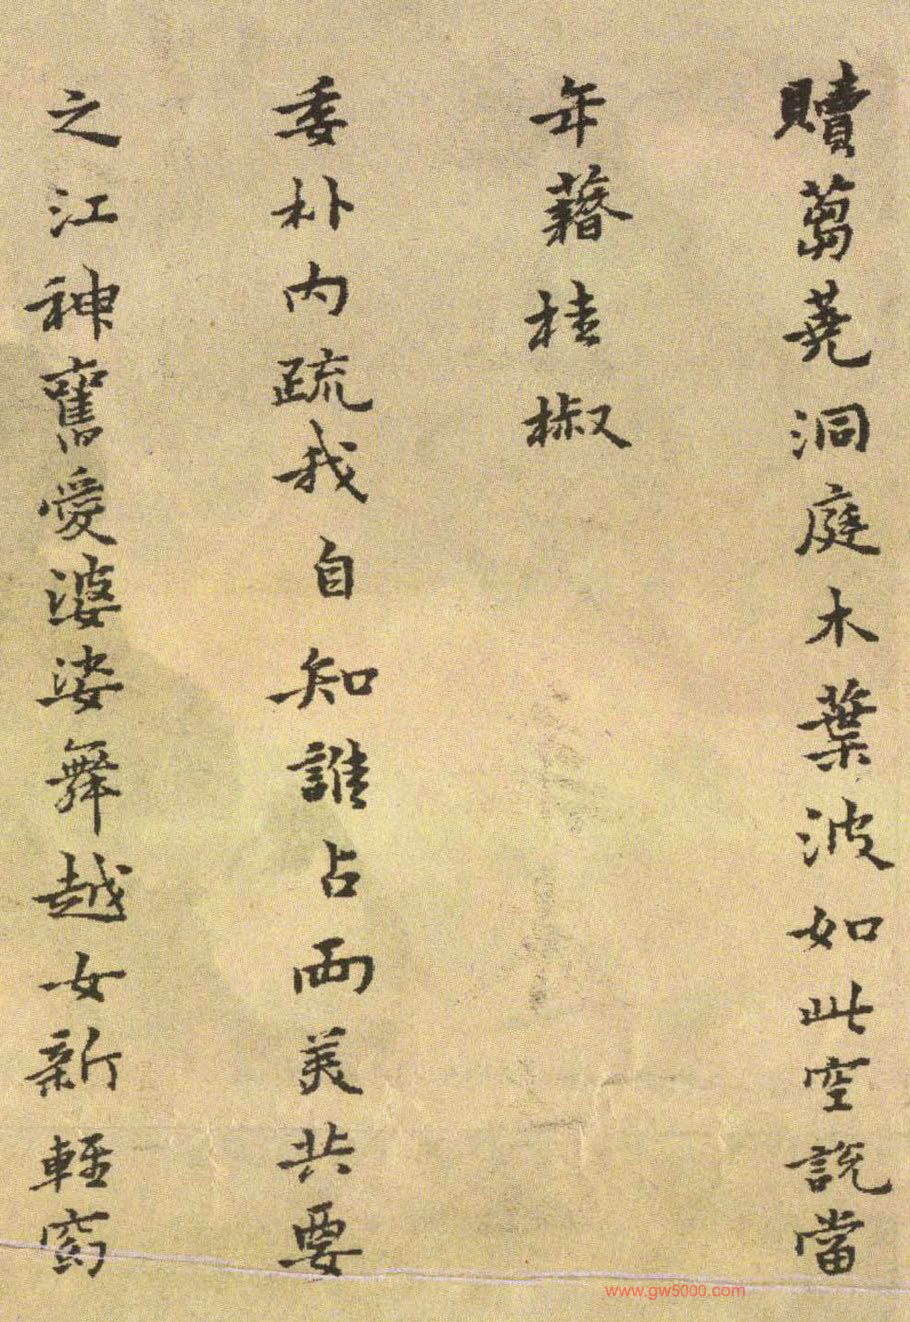 贖蒭蕘洞庭木葉波如此空說當
年藉桂椒
委朴內疏我自知誰占兩美共要
之江神舊愛婆娑舞越女新輕窈
www.gw5000.com